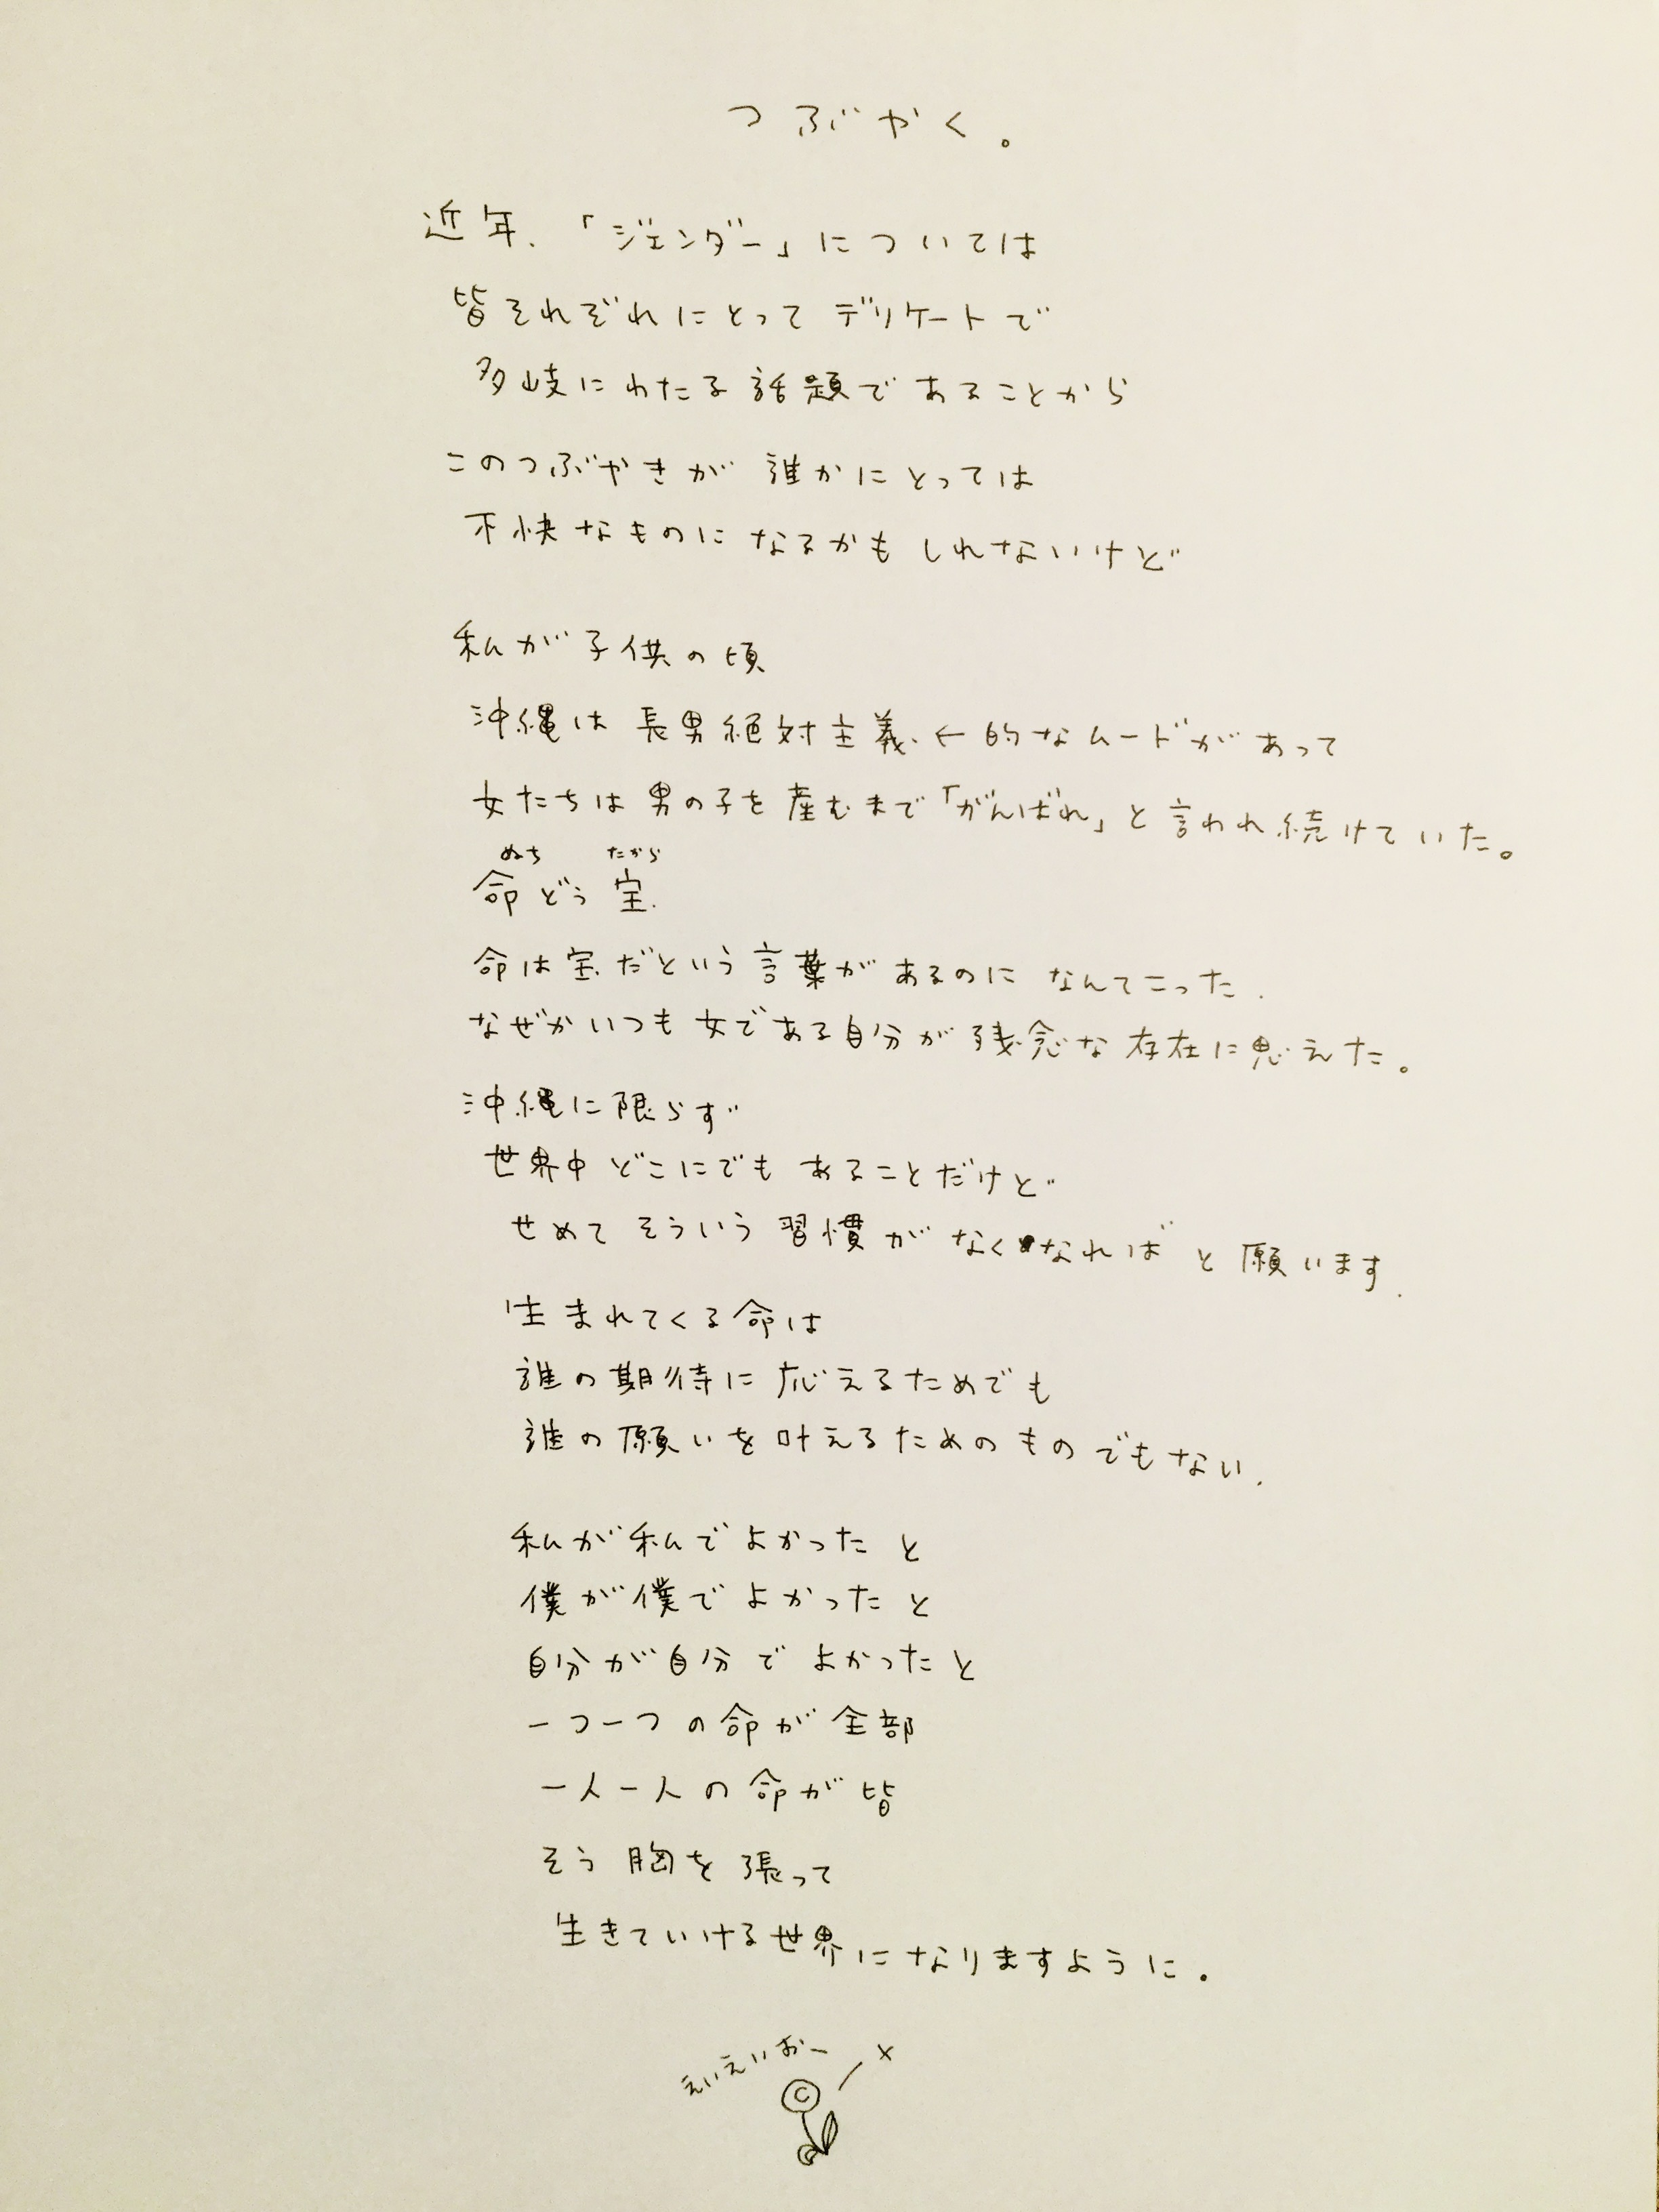 つぶやく。
近年、「ジェンダー」については
皆それぞれにとってデリケートで
多岐にわたる話題であることから
このつぶやきが誰かにとっては
不快なものになるかもしれないけど
私が子供の頃
沖縄は長男絶対主義←的なムードがあって
女たちは男の子を産むまで「がんばれ」と言われ続けていた。
ぬち たから
命どぅ宝、
命は宝だという言葉があるのになんてこった、
なぜかいつも女である自分が残念な存在に思えた。
沖縄に限らず
世界中どこにでもあることだけど
せめてそういう習慣がなくなればと願います、
生まれてくる命は
誰の期待に応えるためでも
誰の願いを叶えるためのものでもない、
私が私でよかったと
僕が僕でよかったと
自分が自分でよかったと
一つ一つの命が全部
一人一人の命が皆
そう胸を張って
生きていける世界になりますように。
えいえいおー
C